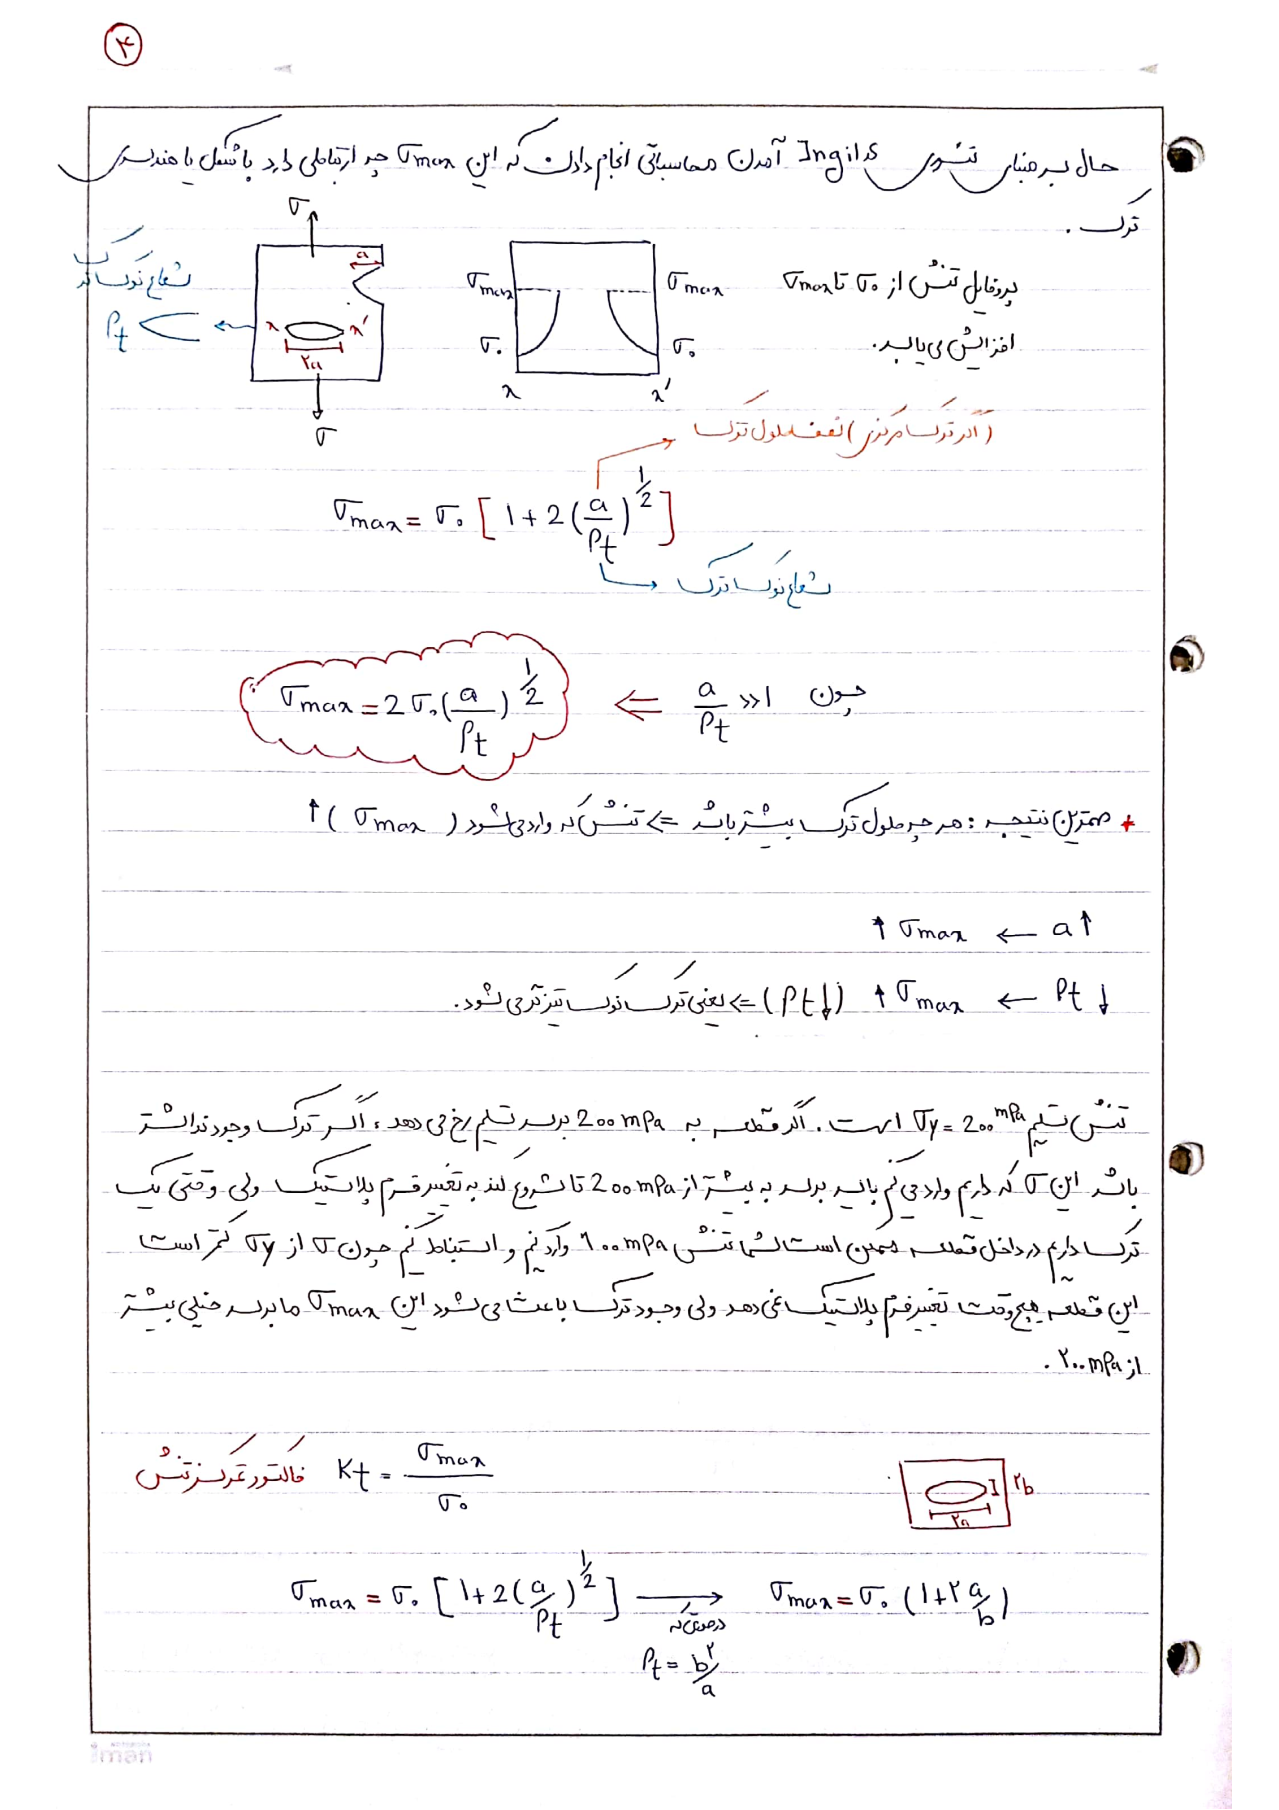 ۴
حال بر مبنای تئوری Ingilds آمدن محاسباتی انجام دادن که این σmax چه ارتباطی دارد با شکل یا هندسه‌ی
ترک .
σ
a
شعاع نوک ترک
ρt
x x'
۲a
σ
σmax σmax
σ۰ σ۰
x x'
پروفایل تنش از σ۰ تا σmax
افزایش می‌یابد.
(اگر ترک مرکزی) نصف طول ترک
σmax = σ۰ [1+2(a/ρt)^1/2]
شعاع نوک ترک
چون a/ρt >>1 ⇐ σmax = 2σ۰(a/ρt)^1/2
+ مهمترین نتیجه : هر چه طول ترک بیشتر باشد => تنش که وارد می‌شود (σmax) ↑
a↑ ← σmax ↑
ρt ↓ ← σmax ↑ (ρt↓) => یعنی ترک نوک تیزتر می‌شود.
تنش تسلیم σy = 200 mPa است. اگر قطعه به 200 mPa برسد تسلیم رخ می دهد، اگر ترک وجود نداشته
باشد این σ که داریم وارد می‌کنم باید برسد به بیشتر از 200 mPa تا شروع کند به تغییر فرم پلاستیک ولی وقتی یک
ترک داریم در داخل قطعه ممکن است شما تنش ۱۰۰ mPa وارد کنیم و استنباط کنیم چون σ از σy کمتر است
این قطعه هیچ وقت تغییر فرم پلاستیک نمی دهد ولی وجود ترک باعث می شود این σmax ما برسد خیلی بیشتر
از ۲۰۰ mPa .
فاکتور تمرکز تنش Kt = σmax/σ۰
۲b
۲a
σmax = σ۰ [1+2(a/ρt)^1/2] ⟶ σmax = σ۰ (1+۲a/b)
در صورتی که
ρt = b^۲/a
iman